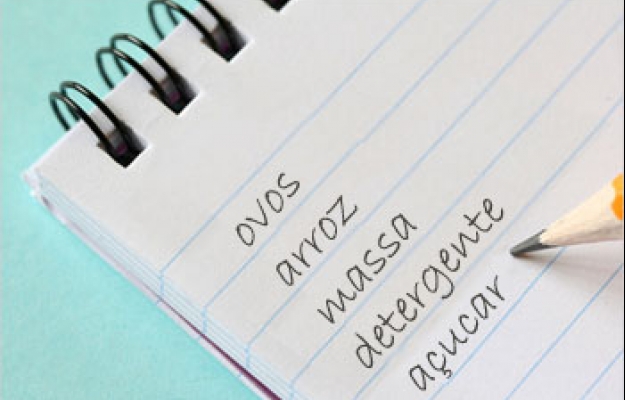 ovos
arroz
massa
detergente
açucar